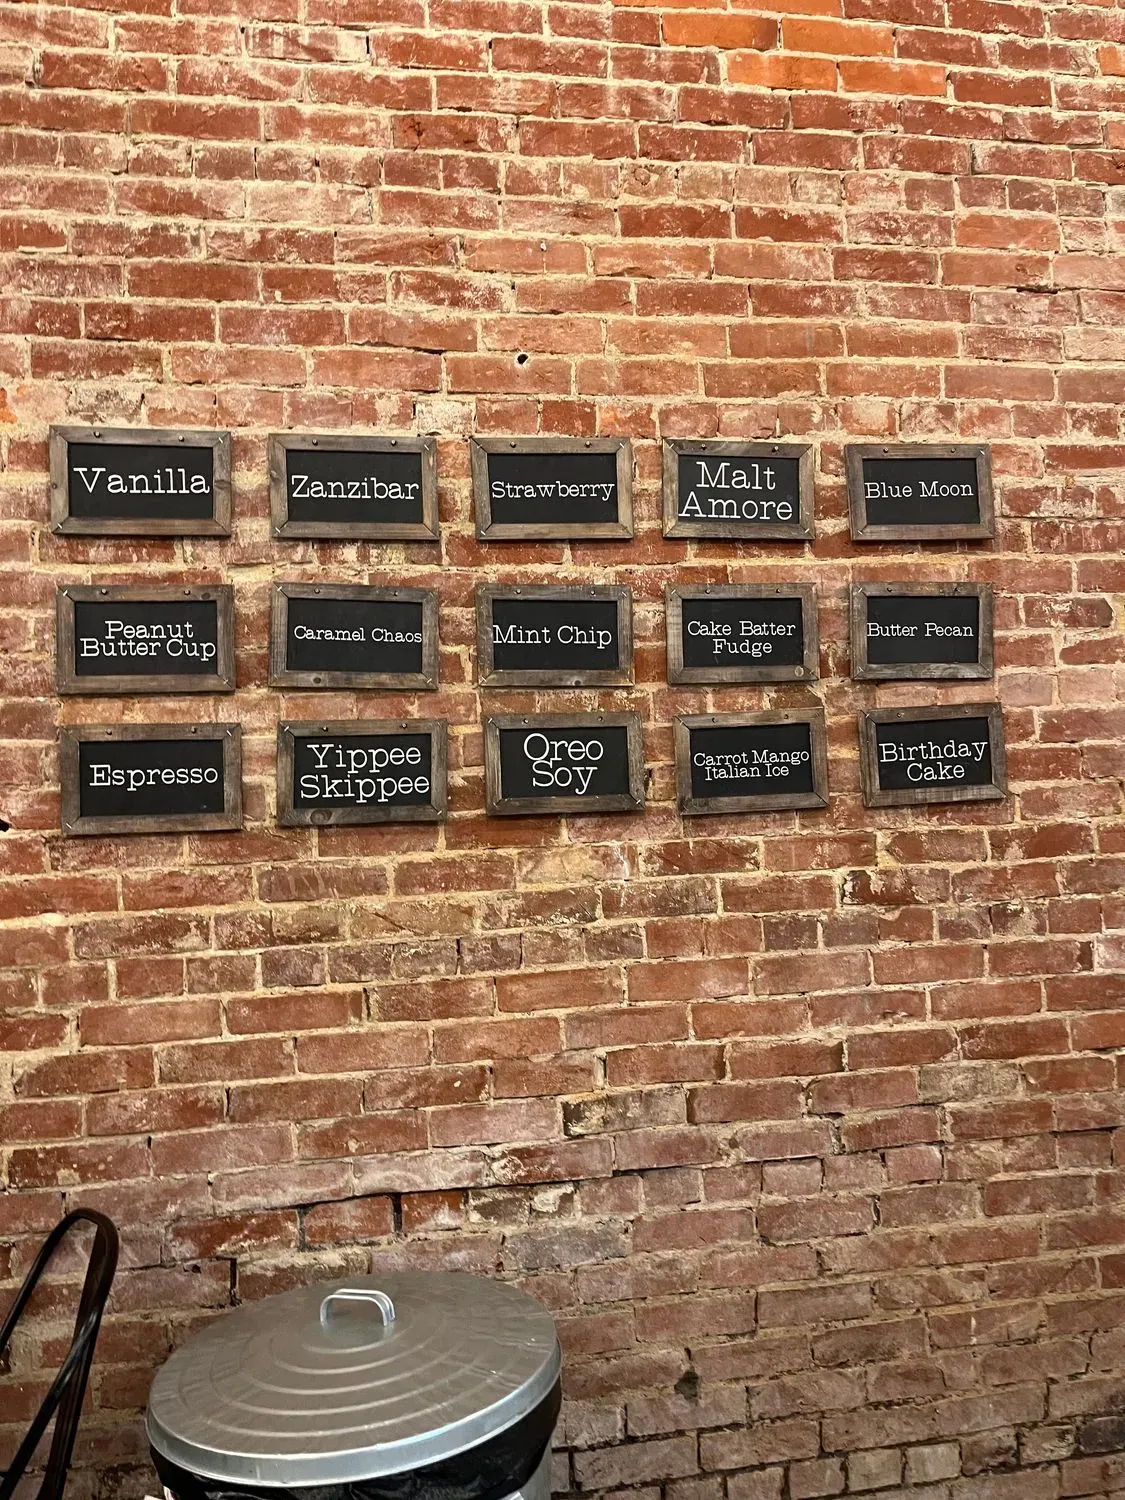 Vanilla
Zanzibar
Strawberry
Malt
Amore
Blue Moon
Peanut
Butter Cup
Caramel Chaos
Mint Chip
Cake Batter
Fudge
Butter Pecan
Espresso
Yippee
Skippee
Oreo
Soy
Carrot Mango
Italian Ice
Birthday
Cake